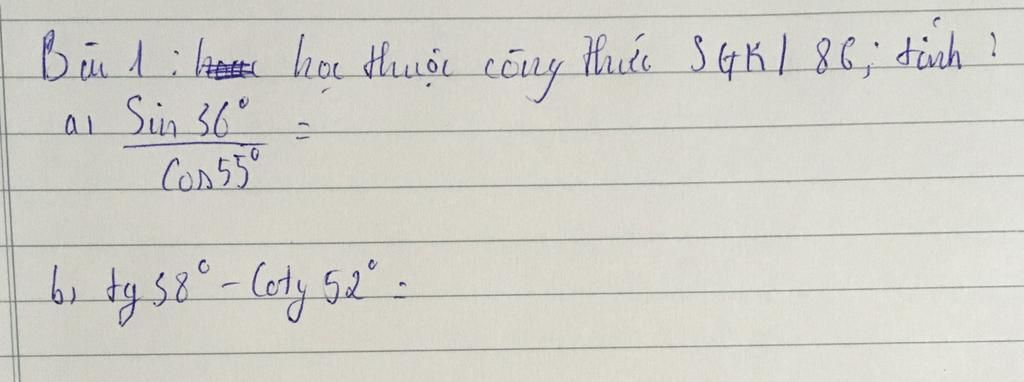 Bài 1: học thuộc công thức SGK/ 86; tính?
a, Sin 36°
=
Cos 55°
b, tg 38° - Cotg 52° =